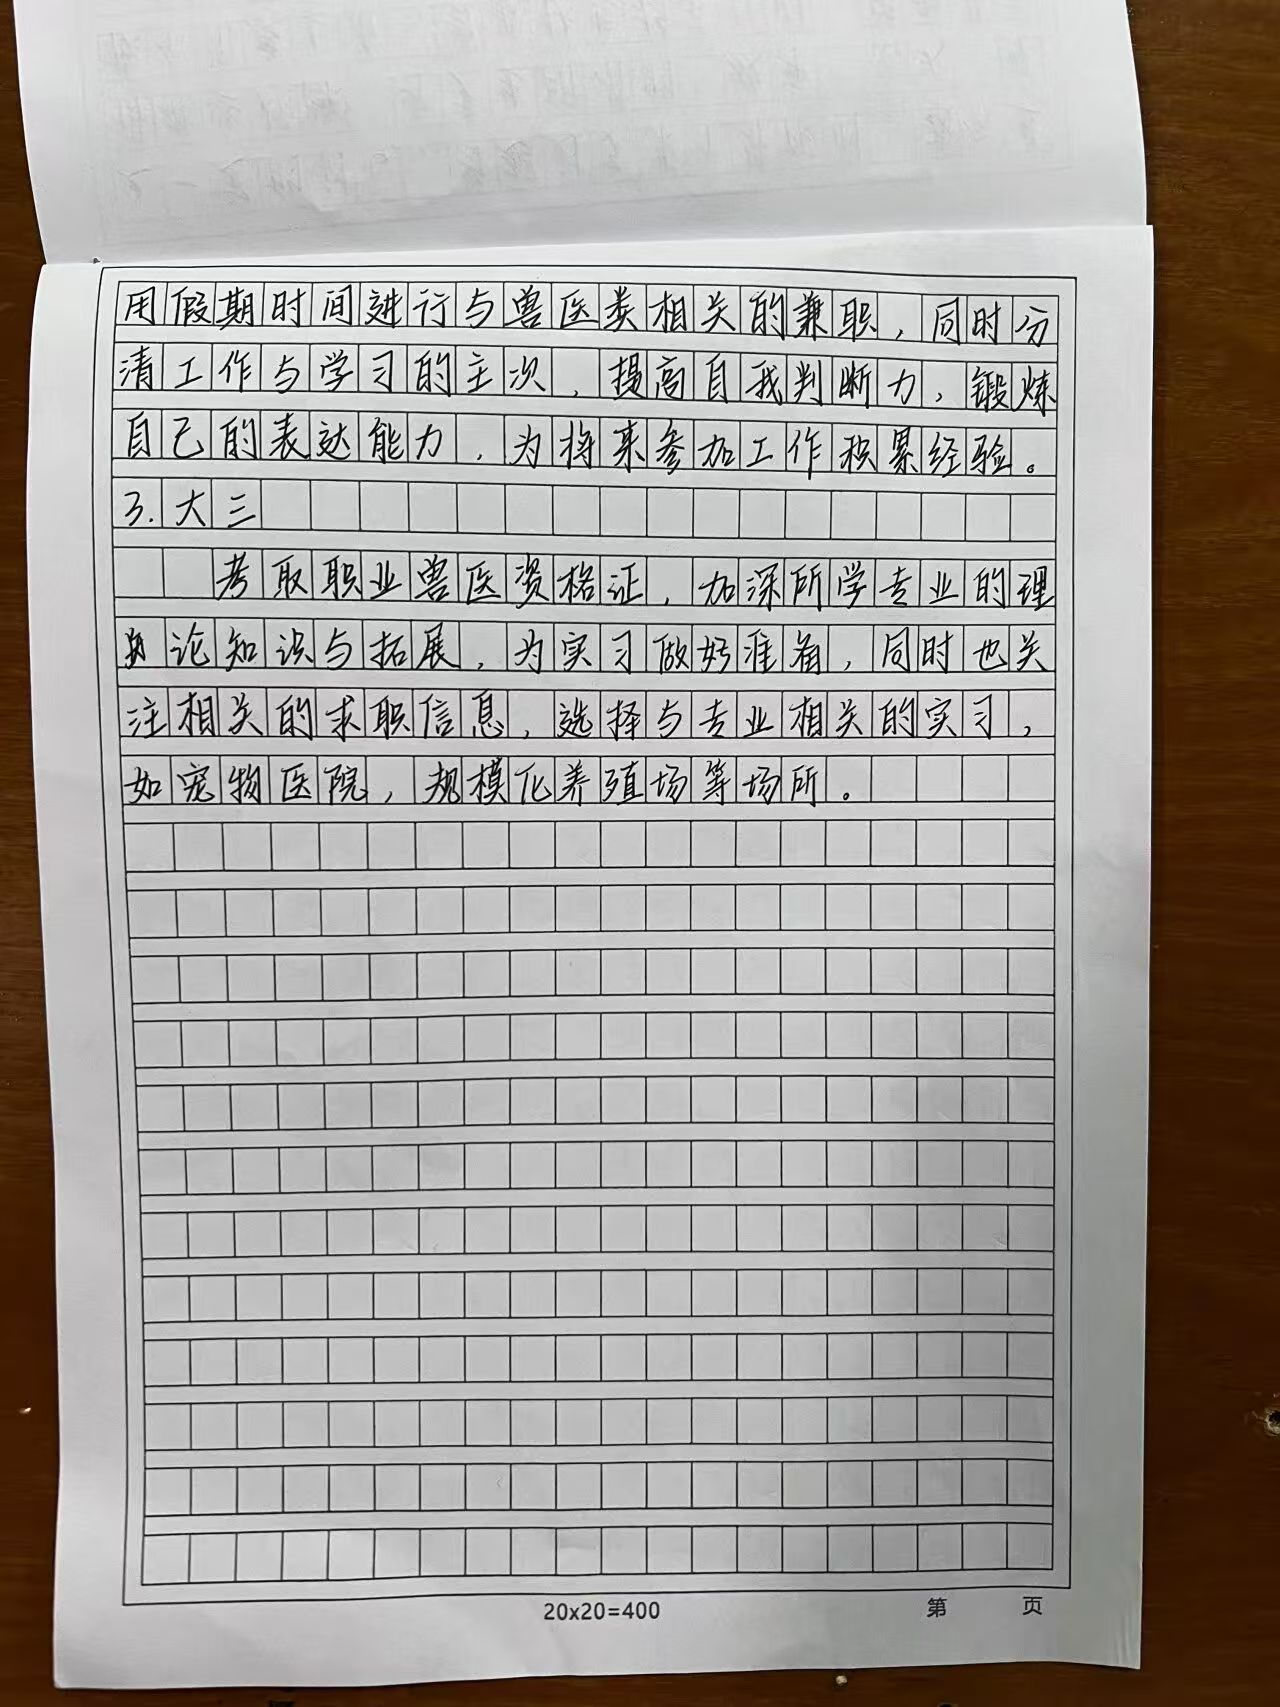 用假期时间进行与兽医类相关的兼职，同时分
清工作与学习的主次，提高自我判断力，锻炼
自己的表达能力，为将来参加工作积累经验。
3.大三
考取职业兽医资格证，加深所学专业的理
论知识与拓展，为实习做好准备，同时也关
注相关的求职信息，选择与专业相关的实习，
如宠物医院，规模化养殖场等场所。
20x20=400 第 页